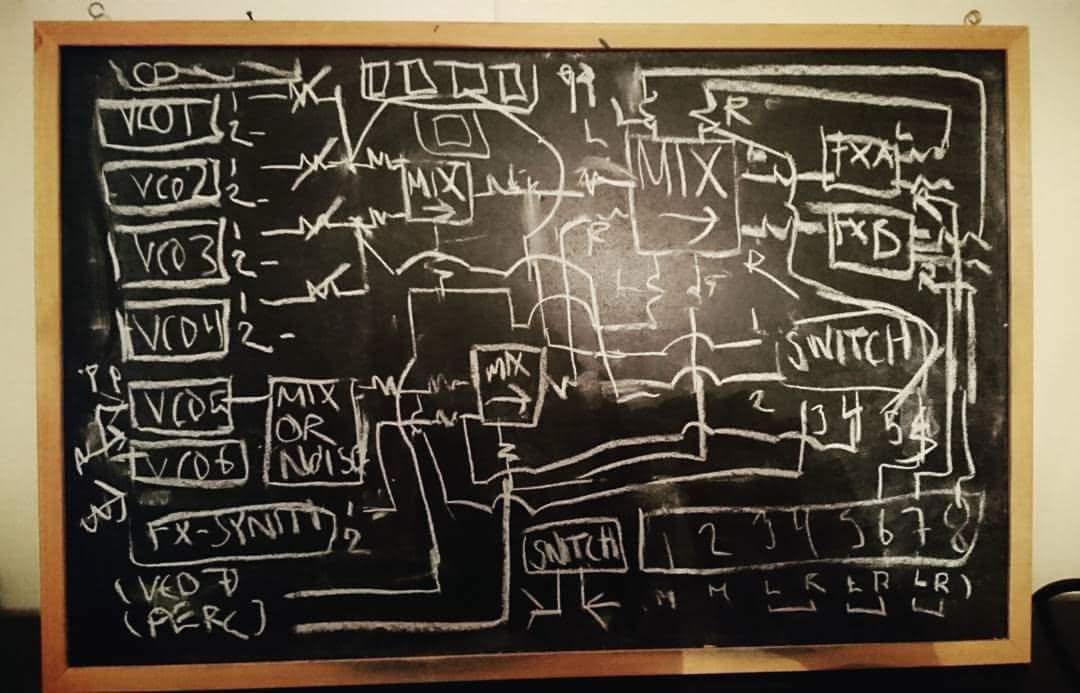 VCO1 1
2 -
VCO2 1
2 -
VCO3 1
2 -
VCO4 1
2 -
VCO5
VCO6
MIX
OR
NOISE
FX-SYNTH 1
2
(VCO 7)
(PERC)
MIX
MIX
L
R
L
MIX
R
L
R
FXA
L
R
FXB
R
SWITCH
1
2
3 4 5 6
SWITCH
1 2 3 4 5 6 7 8
M M L R L R L R